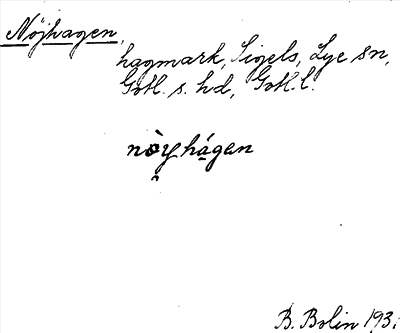 Nöjhagen,
hagmark, Sigels, Lye sn,
Gotl. s. hd, Gotl. l.
nòyhágen
B. Bolin 193.